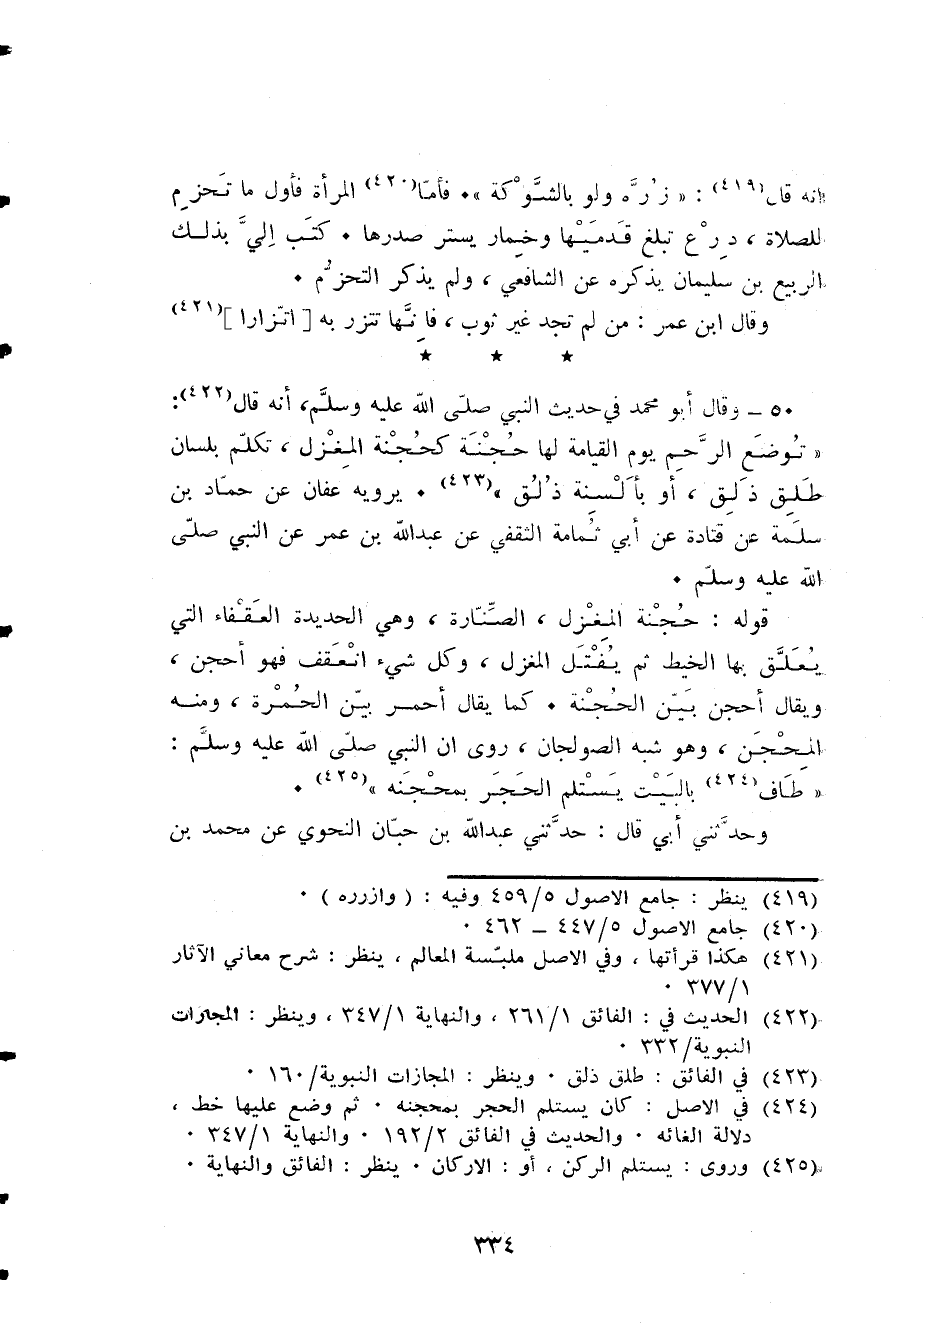 انه قال(٤١٩) : « زُرَّه ولو بالشَّوْكة »٠ فأمّا(٤٢٠) المرأة فأول ما تَحزِم
للصلاة ، دِرْع تبلغ قَدميْها وخِمار يستر صدرها ٠ كتَب اِليَّ بذلك
الربيع بن سليمان يذكره عن الشافعي ، ولم يذكر التحزُّم ٠
وقال ابن عمر : من لم تجد غير ثوب ، فاِنَّها تتزر به [ اتّزارا ](٤٢١)
★ ★ ★
٥٠ ــ وقال أبو محمد في حديث النبي صلّى الله عليه وسلَّم، أنه قال(٤٢٢):
« تُوضَع الرَّحِم يوم القيامة لها حُجْنَة كحُجْنة المِغْزل ، تكلّم بلسان
طَلِق ذَلِق ، أو بأَلْسِنة ذُلُق »(٤٢٣) ٠ يرويه عفان عن حمّاد بن
سلَمة عن قتادة عن أبي ثُمامة الثقفي عن عبدالله بن عمر عن النبي صلّى
الله عليه وسلّم ٠
قوله : حُجْنة المِغْزل ، الصِّنّارة ، وهي الحديدة العَقْفاء التي
يُعَلَّق بها الخيط ثم يُفْتَل المغزل ، وكل شيء انْعَقف فهو أحجن ،
ويقال أحجن بَيّن الحُجْنة ٠ كما يقال أحمر بيّن الحُمْرة ، ومنه
المِحْجَن ، وهو شبه الصولجان ، روى ان النبي صلّى الله عليه وسلَّم :
« طَاف(٤٢٤) بالبَيْت يَسْتلم الحَجَر بمحْجَنه »(٤٢٥) ٠
وحدَّثني أبي قال : حدَّثني عبدالله بن حبّان النحوي عن محمد بن
(٤١٩) ينظر : جامع الاصول ٤٥٩/٥ وفيه : ( وازرره ) ٠
(٤٢٠) جامع الاصول ٤٤٧/٥ ــ ٤٦٢ ٠
(٤٢١) هكذا قرأتها ، وفي الاصل ملبّسة المعالم ، ينظر : شرح معاني الآثار
٣٧٧/١ ٠
(٤٢٢) الحديث في : الفائق ٢٦١/١ ، والنهاية ٣٤٧/١ ، وينظر : المجازات
النبوية/٣٣٢ ٠
(٤٢٣) في الفائق : طلق ذلق ٠ وينظر : المجازات النبوية/١٦٠ ٠
(٤٢٤) في الاصل : كان يستلم الحجر بمحجنه ٠ ثم وضع عليها خط ،
دلالة الغائه ٠ والحديث في الفائق ١٩٢/٢ ٠ والنهاية ٣٤٧/١ ٠
(٤٢٥) وروى : يستلم الركن ، أو : الاركان ٠ ينظر : الفائق والنهاية ٠
٣٣٤